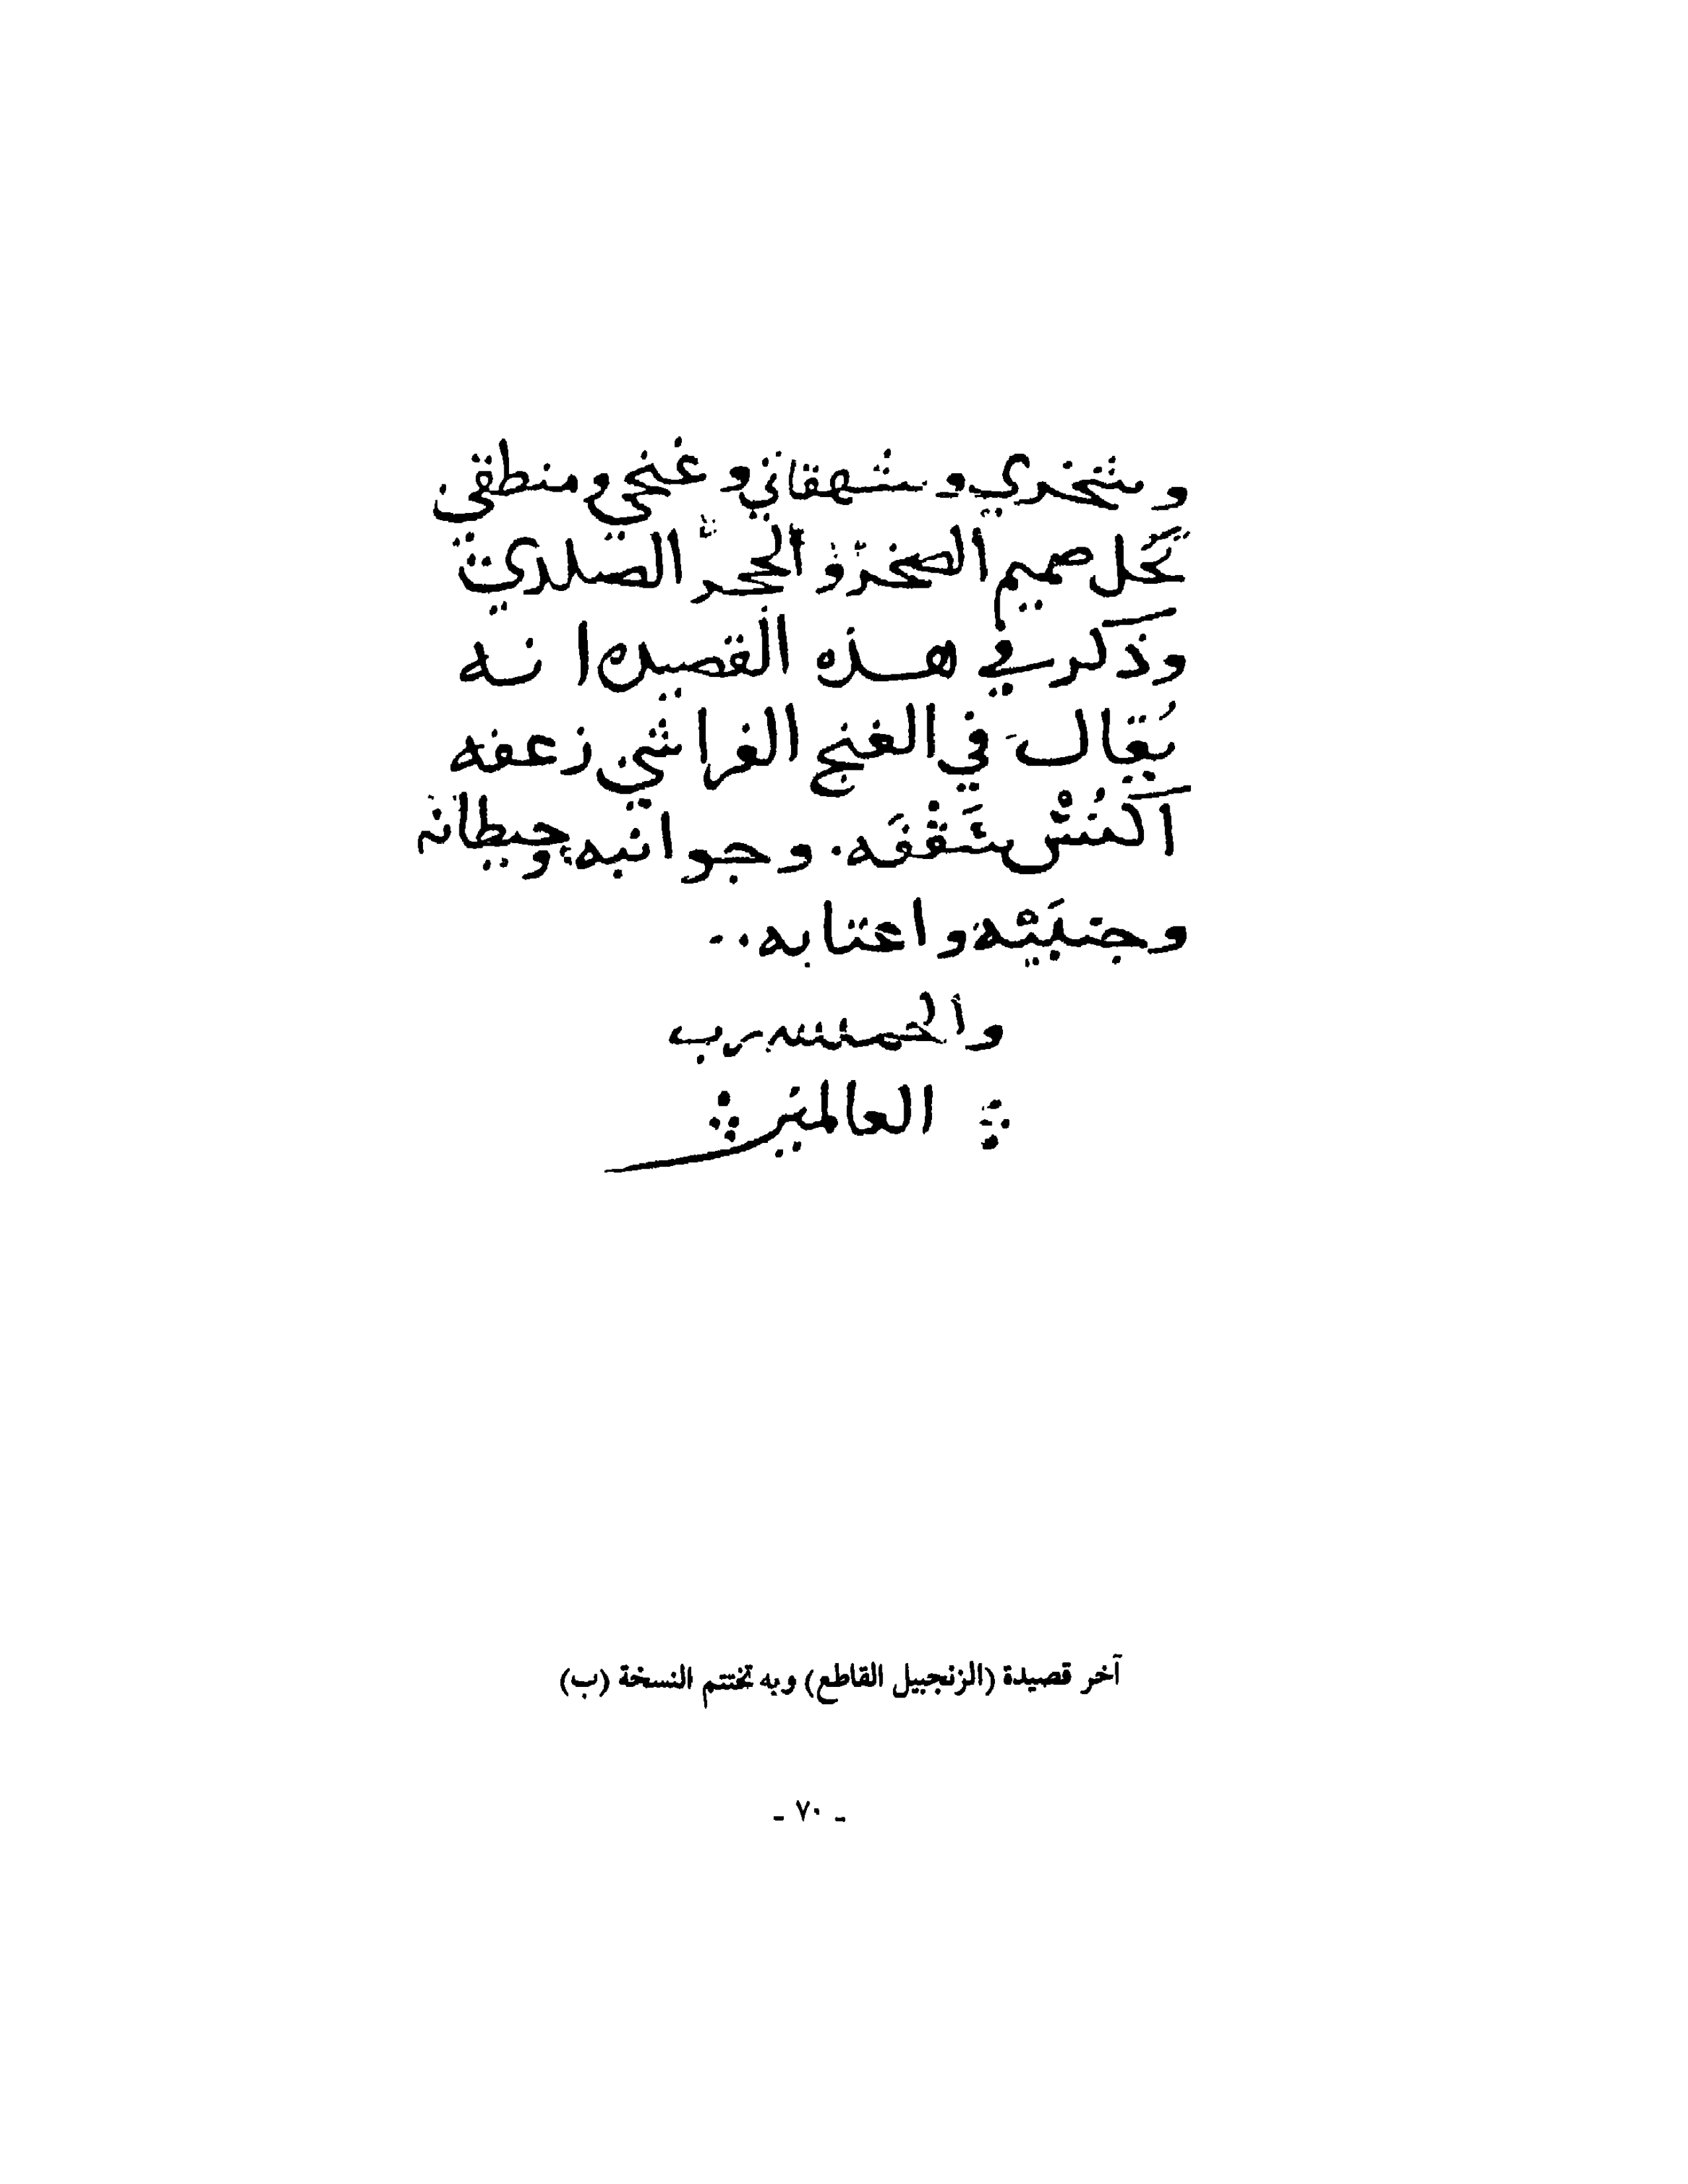 ونخري وشهقاتي وغنجي ومنطقي
يحل صميم الصخر والحجر الصلدي
وذكر في هذه القصيده انه
يُقال في الغنج الفراشي زعفه
اكنُسْ سَقْفَه. وجوانبه وحيطانه
وجنبيته واعتابه..
والحمد لله رب
العالمين
آخر قصيدة (الزنجبيل القاطع) وبه تختتم النسخة (ب)
- ٧٠ -